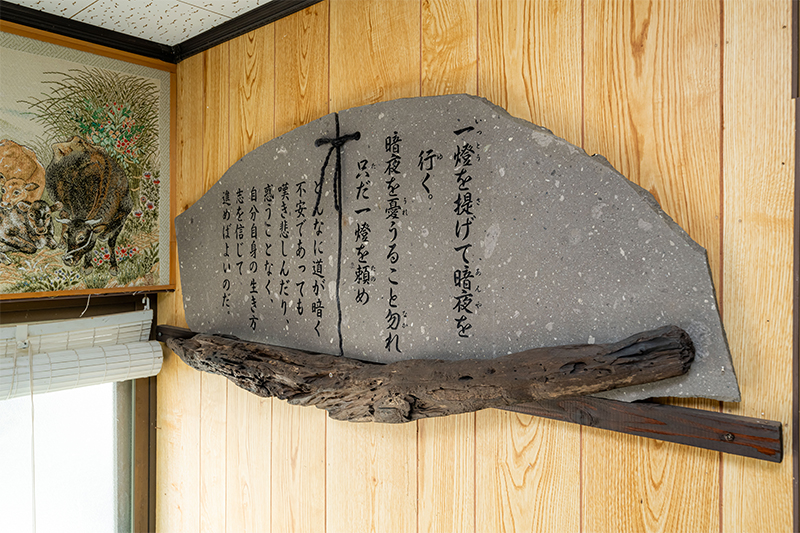 一燈を提げて暗夜を
行く。
暗夜を憂うること勿れ
只だ一燈を頼め
どんなに道が暗く
不安であっても
嘆き悲しんだり、
惑うことなく、
自分自身の生き方
志を信じて
進めばよいのだ。